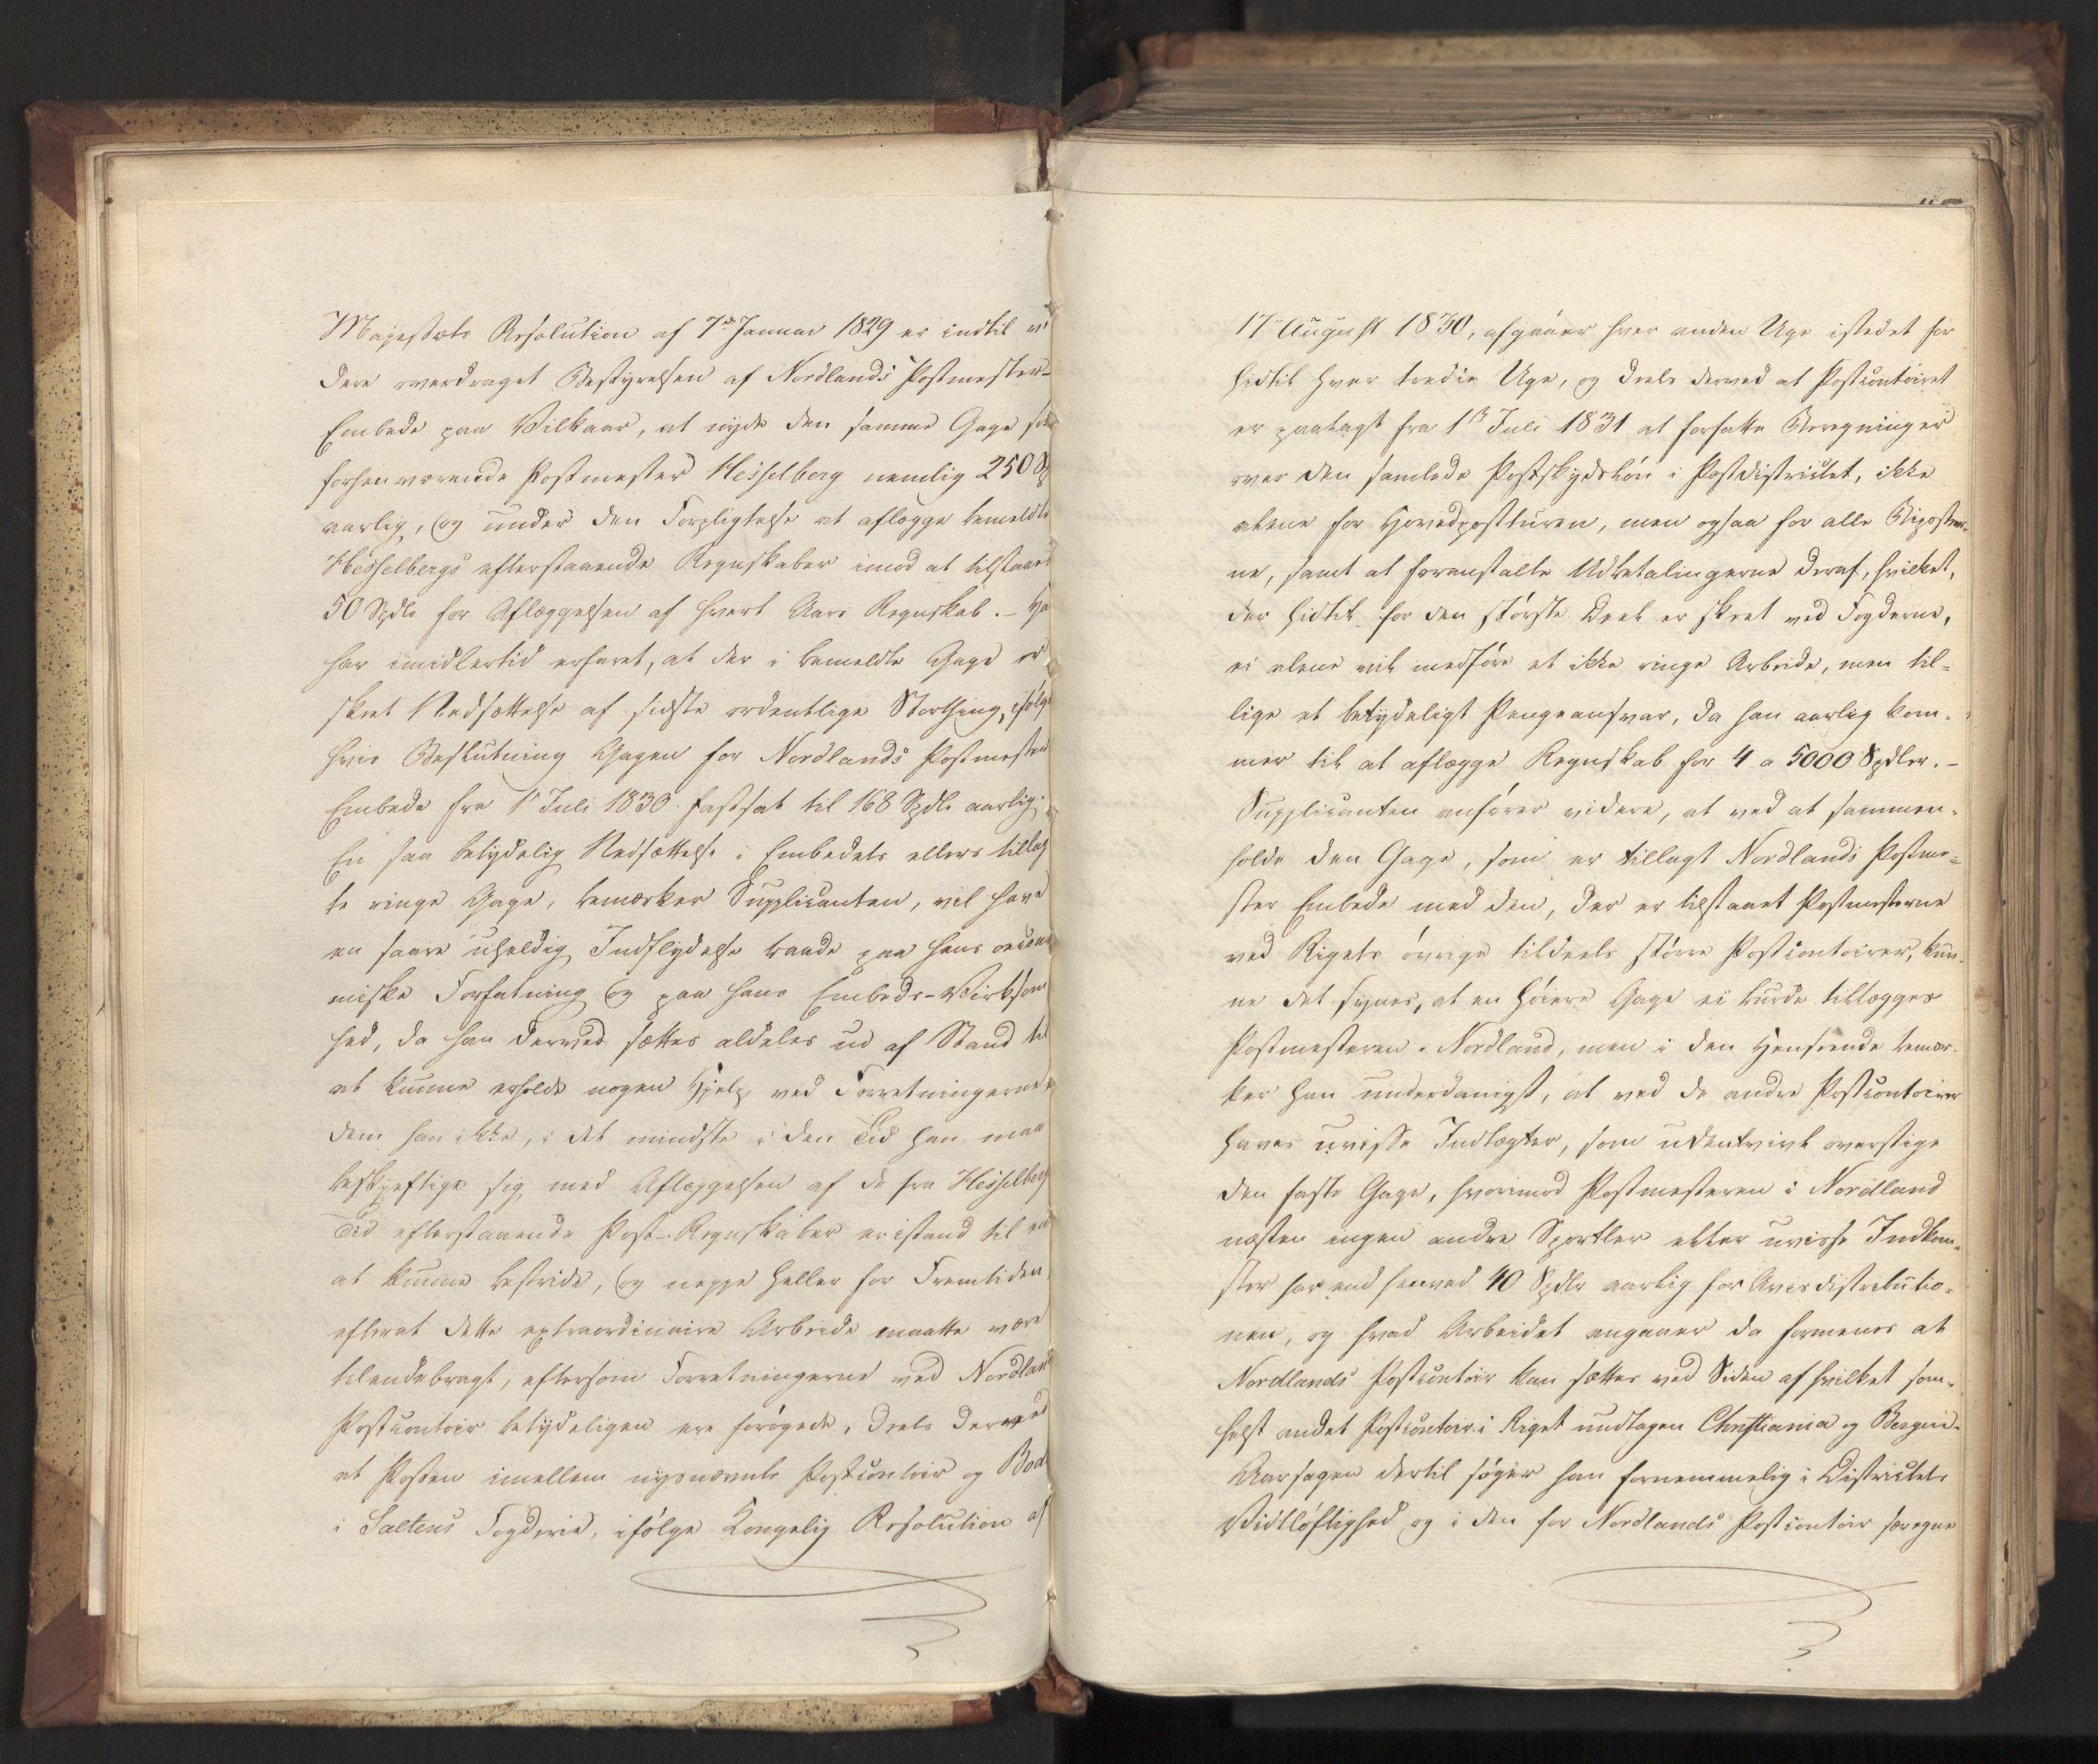 Majestæts Resolution af 7de Januar 1829 er indtil vi
dere overdraget Bestyrelsen af Nordlands Postmester-
Embede paa Vilkaar, at nyde den samme Gage som
forhenværende Postmester Hesselberg nemlig 250 Sp
aarlig, og under den Forpligtelse at aflægge bemeldte
Hesselbergs efterstaaende Regnskaber imod at tilstaaes
50 Spdlr for Aflæggelsen af hvert Aars Regnskab. – Ha
har imidlertid erfaret, at der i bemeldte Gage er
skeet Nedsættelse af sidste ordentlige Storthing, ifølge
hvis Beslutning Gagen for Nordlands Postmester
Embede fra 1 Juli 1830 fastsat til 168 Spdlr aarlig.
En saa betydelig Nedsættelse i Embedets ellers tillag
te ringe Gage, bemærker Supplicanten, vil have
en saare uheldig Indflydelse baade paa hans oecono
miske Forfatning og paa hans Embeds-Virksom
hed, da han derved sættes aldeles ud af Stand til
at kunne erholde nogen Hjelp ved Forretningerne
dem han ikke, i det mindste i den Tid han maa
beskjeftige sig med Aflæggelsen af de fra Hesselberg
Tid efterstaaende Post-Regnskaber er istand til
at kunne bestride, og neppe heller for Fremtiden
efterat dette extraordinaire Arbeide maatte være
tilendebragt, eftersom Forretningerne ved Nordland
Postcontoir betydeligen ere forøgede, deels derved
at Posten imellem nysnævnte Postcontoir og Bod
i Saltens Fogderie, ifølge Kongelig Resolution af
17 August 1830, afgaaer hver anden Uge istedet for
hidtil hver tredie Uge, og deels derved at Postcontoiret
er paalagt fra 1ste Juli 1831 at forfatte Beregninger
over den samlede Postskydslön i Postdistrictet, ikke
alene for Hovedpostturen, men ogsaa for alle Biposter-
ne, samt at foranstalte Udbetalingerne deraf, hvilket,
der hidtil for den største Deel er skeet ved Fogderne,
ei alene vil medføre et ikke ringe Arbeide, men til-
lige et betydeligt Pengeansvar, da han aarlig kom-
mer til at aflægge Regnskab for 4 a 5000 Spdlr. –
Supplicanten anfører videre, at ved at sammen-
holde den Gage, som er tillagt Nordlands Postme-
ster Embede med den, der er tilstaaet Postmesterne
ved Rigets øvrige tildeels større Postcontoirer, kun-
ne det synes, at en høiere Gage ei burde tillægges
Postmesteren i Nordland, men i den Henseende bemær-
ker han underdanigst, at ved de andre Postcontoirer
haves uvisse Indtægter, som udentvivl overstige
den faste Gage, hvorimod Postmesteren i Nordland
næsten ingen andre Sportler eller uvisse Indkom-
ster har end henved 40 Spdlr aarlig for Avisdistributio-
nen, og hvad Arbeidet angaaer da formenes at
Nordlands Postcontoir kan sættes ved Siden af hvilket som-
helst andet Postcontoir i Riget undtagen Christiania og Bergen.
Aarsagen dertil søger han fornemmelig i Districtets
Vidtløftighed og i den for Nordlands Postcontoir særegne